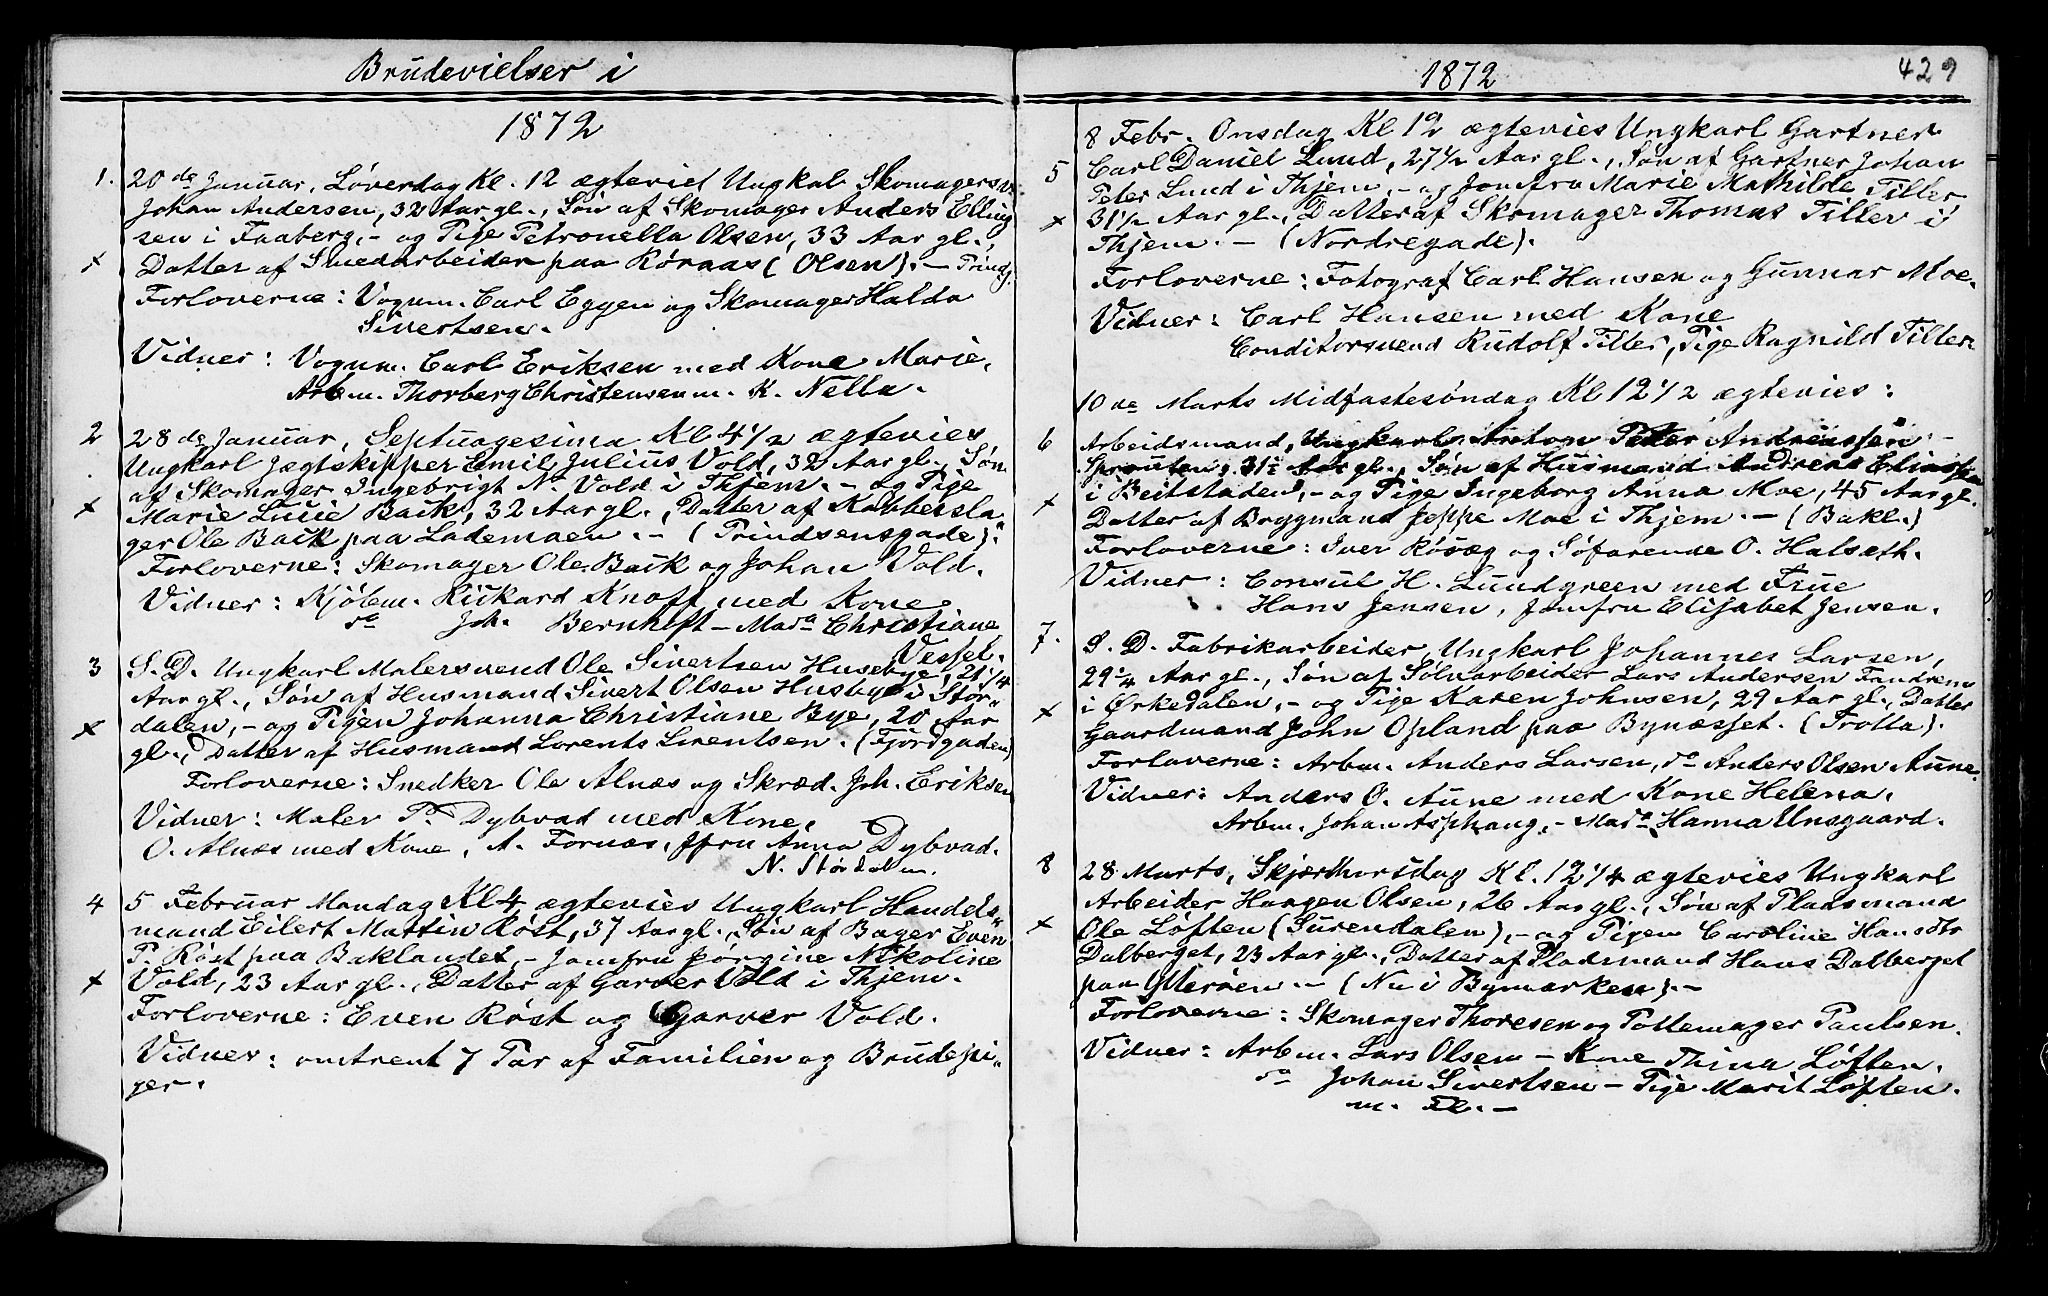 Brudevielser i
1872
1. 20de Januar, Løverdag Kl. 12 ægteviet Ungkal Skomagersv.
Johan Andersen, 32 Aar gl., Søn af Skomager Anders Elling
sen i Faaberg, - og Pige Petronella Olsen, 33 Aar gl.,
x Datter af Smedarbeider paa Røraas (Olsen). - Prindsg.
Forloverne: Vognm. Carl Eggen og Skomager Halda
Sivertsen.
Vidner: Vognm. Carl Eriksen med Kone Marie,
Arbm. Thorberg Christensen m. K. Nella.
2 28de Januar, Septuagesima Kl 4 1/2 ægtevies
Ungkarl Jægtskipper Emil Julius Vold, 32 Aar gl., Søn
af Skomager Ingebrigt N. Vold i Thjem. - og Pige
x Marie Lucie Back, 32 Aar gl., Datter af Kobbersla
ger Ole Back paa Lademoen. - (Prindsensgade).
Forloverne: Skomager Ole Baik og Johan Vold.
Vidner: Kjøbm. Rickard Knoff med Kone
do Joh. Bernhoft - Mada Christiane
Vessel.
3 S. D. Ungkarl Malersvend Ole Sivertsen Husebye, 21 1/4
Aar gl., Søn af Husmand Sivert Olsen Husbye i Stør"
dalen, - og Pigen Johanna Christiane Bye, 20 Aar
x gl., Datter af Husmand Lorents Lorentsen. (Fjordgaden)
Forloverne: Snedker Ole Alnæs og Skræd. Joh. Eriksen
Vidner: Maler P. Dybvad med Kone,
O. Alnæs med Kone, A. Fornæs, Jfru Anna Dybvad.
N. Størdalen.
4 5 Februar Mandag Kl 4 ægtevies Ungkarl Handels"
mand Eilert Martin Røst, 37 Aar gl., Søn af Bager Even
P. Røst paa Baklandet, - Jomfru Jørgine Nikoline
x Vold, 23 Aar gl., Datter af Garver Vold i Thjem.
Forloverne: Even Røst og Garver Vold.
Vidner: omtrent 7 Par af Familien og Brudepi"
ger.
1872 429
8 Febr. Onsdag Kl 12 ægtevies Ungkarl Gartner
5 Carl Daniel Lund, 27 1/2 Aar gl., Søn af Gartner Johan
Peter Lund i Thjem, - og Jomfru Marie Mathilde Tiller
x 31 1/2 Aar gl., Datter af Skomager Thomas Tiller i
Thjem. - (Nordregade).
Forloverne: Fotograf Carl Hansen og Gunnar Moe.
Vidner: Carl Hansen med Kone
Conditorsvend Rudolf Tiller, Pige Ragnild Tiller
10de Marts Midfastesøndag Kl 12 1/2 ægtevies:
6 Arbeidsmand, Ungkarl Anton Peter Andreassen -
Sprouten, 31 1/2 Aar gl., Søn af Husmand Andreas Eliassen
i Beitstaden, - og Pige Ingeborg Anna Moe, 45 Aar gl.
x Datter af Bryggmand Jeppe Moe i Thjem. - (Bakl.)
Forloverne: Iver Røvæg og Søfarende O. Halseth.
Vidner: Consul H. Lundgreen med Frue
Hans Jensen, Jomfru Elisabet Jensen.
7. S. D. Fabrikarbeider, Ungkarl Johannes Larsen,
29 1/4 Aar gl., Søn af Sølvarbeider Lars Andersen Fandrem
i Ørkedalen, - og Pige Karen Johnsen, 29 Aar gl., Datter
x Gaardmand John Opland paa Bynæsset. (Trolla).
Forloverne: Arbm. Anders Larsen, do Anders Olsen Aune.
Vidner: Anders O. Aune med Kone Helena,
Arbm. Johan Asphaug, - Mada Hanna Unsgaard.
8 28 Marts, Skjærthorsdag Kl. 12 1/4 ægtevies Ungkarl
Arbeider Haagen Olsen, 26 Aar gl., Søn af Pladsmand
x Ole Løften (Surendalen), - og Pigen Caroline Hansdtr
Dalberget, 23 Aar gl., Datter af Pladsmand Hans Dalberget
paa Ytterøen. - (Nu i Bymarken). -
Forloverne: Skomager Thoresen og Pottemager Paulsen.
Vidner: Arbm. Lars Olsen - Kone Thina Løften.
do Johan Sivertsen - Pige Marit Løften.
m. Fl. -